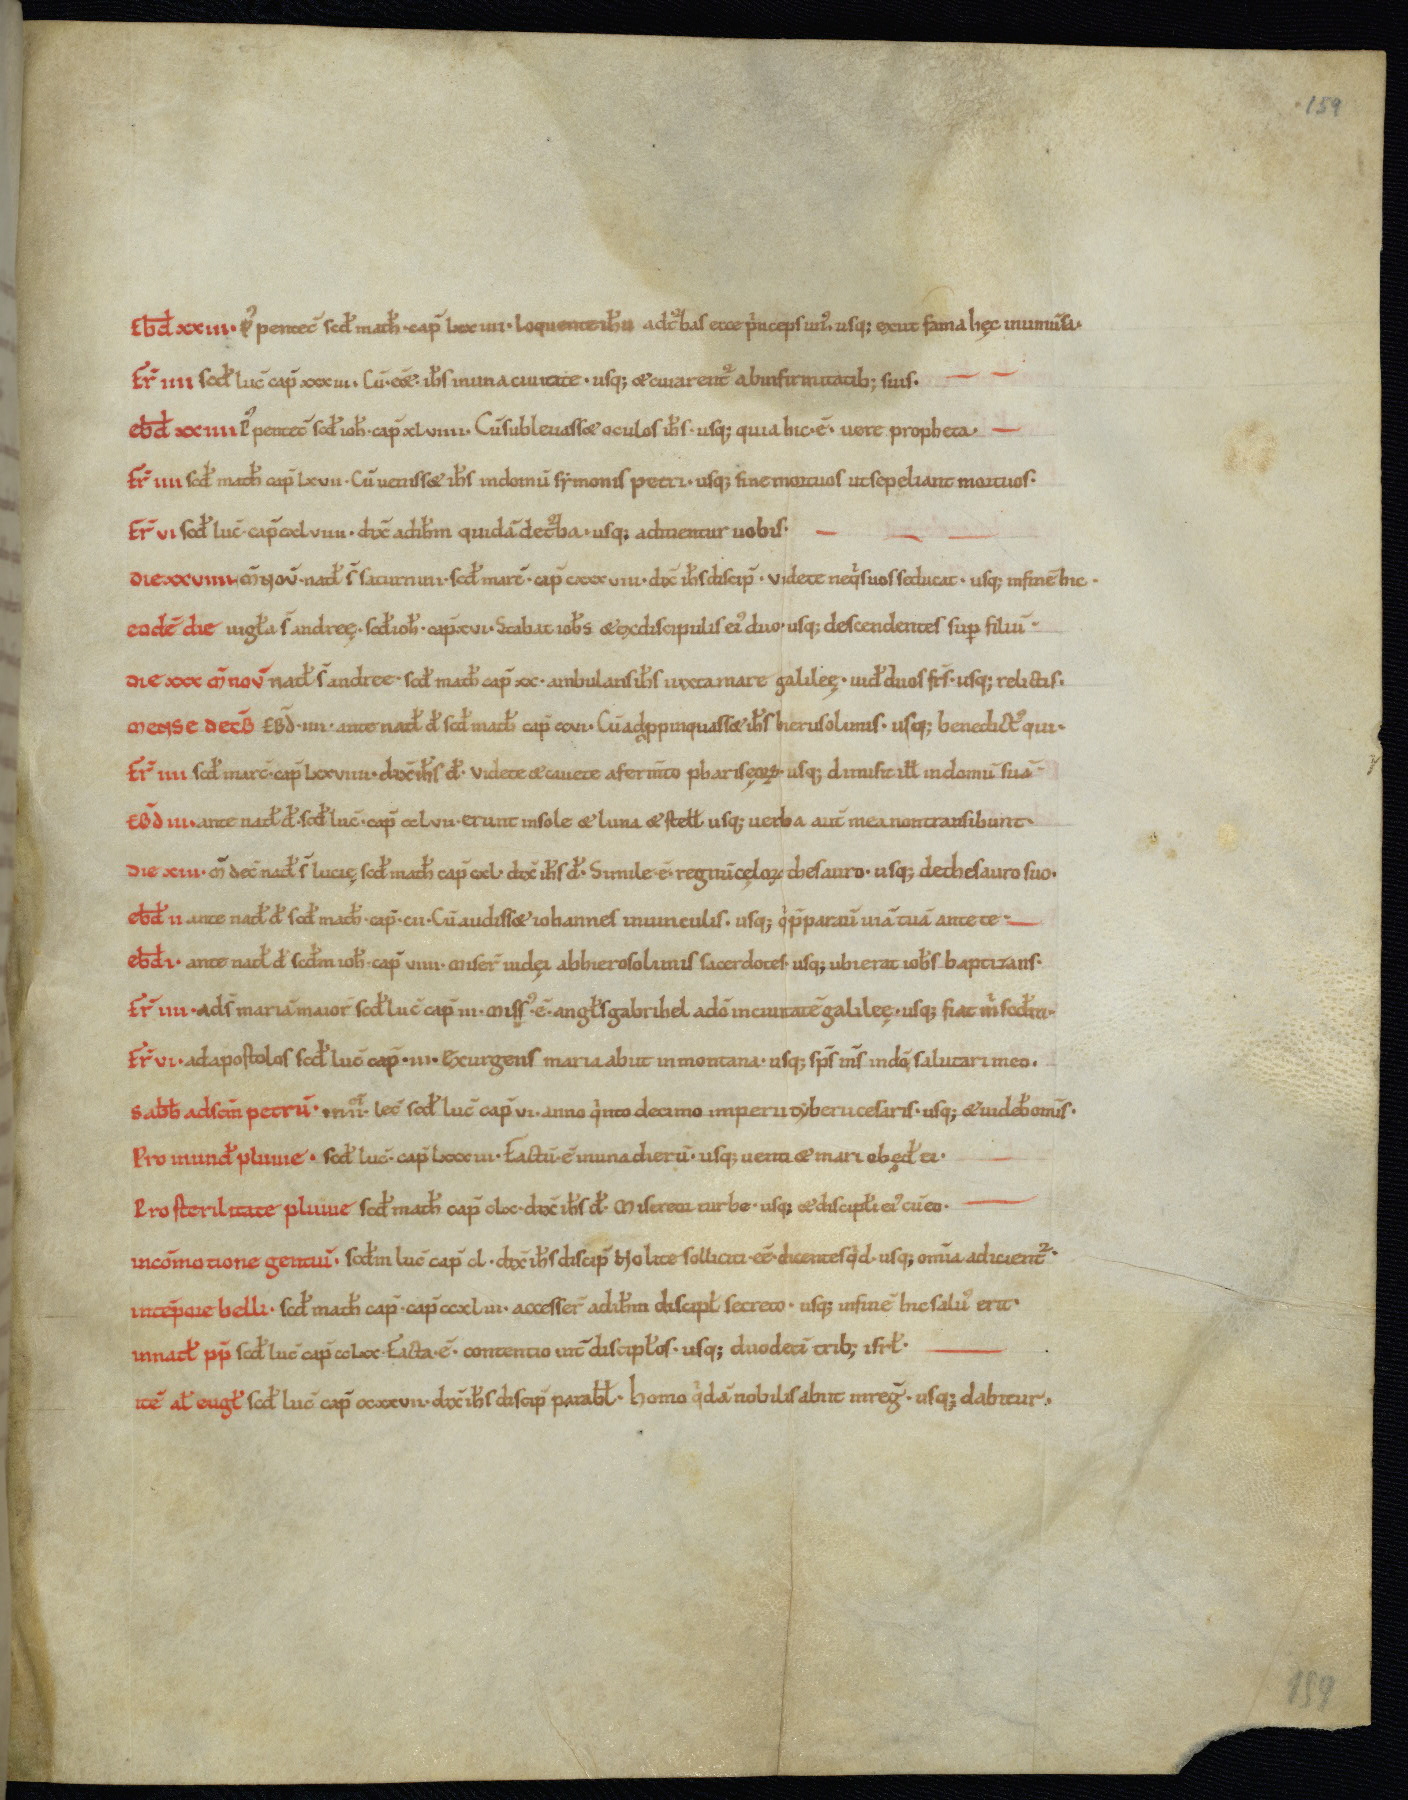 159
Ebd̄ xxiii· P᷒ pentec̄ scd̄ math̄ · cap̄ lxxiiii · Loquente ih̄u ad t᷑bas ecce p̓nceps un᷒ usq; exiit fama hęc in uniūsā·
Fr̄ iiii scd̄ luc̄ cap̄ xxxiii · Cū·eēt· ih̄s in una ciuitate · usq; & curarent᷑ ab infirmitatib; suis·
ebd̄ xxiiii P᷒ pentec̄ scd̄ ioh̄ · cap̄ xlviiii · Cū subleuass& oculos ih̄s · usq; quia hic·ē· uere propheta·
Fr̄ iiii scd̄ math̄ cap̄ lxvii · Cū ueniss& ih̄s in domū sẏmonis petri · usq; sine mortuos ut sepeliant mortuos·
Fr̄ vi scd̄ luc̄ · cap̄ cxlviiii · dix̄ ad ih̄m quidā de t᷑ba · usq; adicientur uobis·
Die xxviiii m̄ Noū · nat̄ s̄ saturnini · scd̄ marc̄ · cap̄ cxxxviii · dix̄ ih̄s discip̄ · Videte neq̓s uos seducat · usq; in finē hic·
eodē die uigl̄a s̄ andreę · scd̄ ioh̄ · cap̄ xvi · Stabat ioh̄s & ex discipulis ei᷒ duo · usq; descendentes sup̱ filiū·
Die xxx m̄ noū nat̄ s̄ andree · scd̄ math̄ cap̄ xx · ambulans ih̄s iuxta mare galileę · uid̄ duos fr̄s · usq; relictis·
Mense decb̄ EBD̄ · iiii · ante nat̄ d̄ scd̄ math̄ cap̄ ccvi · Cū adp̱pinquass& ih̄s hierusolimis · usq; benedict᷒ qui·
Fr̄ iiii scd̄ marc̄ · cap̄ lxxviiii · dix̄ ih̄s d̄ · Videte & cauete a ferm̄to pharisęoꝝ · usq; dimisit ill̄ in domū suā·
EBD̄ iii · ante nat̄ d̄ · scd̄ luc̄ · cap̄ cclvii · erunt in sole & luna & stell̄ usq; uerba aut̄ mea non transibunt·
Die xiii · m̄ dec̄ nat̄ s̄ lucię scd̄ math̄ cap̄ cxl · dix̄ ih̄s d̄ · Simile·ē· regnū cęloꝝ thesauro · usq; de thesauro suo·
ebd̄ ii ante nat̄ d̄ scd̄ math̄ · cap̄ · cii · Cū audiss& iohannes in uinculis · usq; q̓ p̄paraū uiā tuā ante te·
ebd̄ i · ante nat̄ d̄ scd̄m ioh̄ · cap̄ viiii · miser̄ iudęi ab hierosolimis sacerdotes · usq; ubi erat ioh̄s baptizans·
Fr̄ iiii · Ad s̄ mariā maior̄ scd̄ luc̄ cap̄ iii · Miss᷒·ē· angl̄s gabrihel a dō in ciuitatē galileę · usq; fiat m̓ scd̄m·
Fr̄ vi · ad apostolos scd̄ luc̄ cap̄ · iii · Exurgens maria abiit in montana · usq; sp̄s m̄s in dō salutari meo·
Sabb̄ ad scm̄ petrū · iiiiᵒʳ · lec̄ scd̄ luc̄ cap̄ vi · anno q̓nto decimo imperii tẏberii cesaris · usq; & uideb̄ omīs·
Pro inund̄ pluuie · scd̄ luc̄ · cap̄ lxxxiii · Factū·ē in una dierū · usq; uenti & mari obęd̄ ei·
Pro sterilitate pluuie scd̄ math̄ cap̄ clx · dix̄ ih̄s d̄ · Misereor turbe · usq; & discipl̄i ei᷒ cū eo·
in cōmotione gentiū · scd̄m luc̄ cap̄ cl · dix̄ ih̄s discip̄ Nolite solliciti eē dicentes q̓d · usq; omīa adicient᷑·
in tēpore belli · scd̄ math̄ cap̄ · cap̄ ccxliii · accesser̄ ad ih̄m discipl̄ secreto · usq; in finē hic salu᷒ erit·
in nat̄ pp̄ scd̄ luc̄ cap̄ cclxx · Facta·ē· contentio int̄ discipl̄os · usq; duodecī trib; isrl̄·
itē al̄ eugl̄ scd̄ luc̄ cap̄ ccxxvii · dix̄ ih̄s discip̄ parabl̄ · homo q̓dā nobilis abiit in reḡ · usq; dabitur·
159